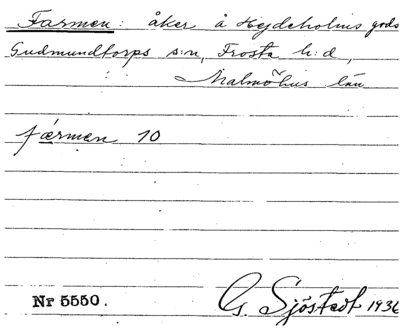 Farmen: åker å Hejdeholms gods
Gudmundtorps s:n, Frosta h:d,
Malmöhus län
färmen 10
Nr 5550.
G. Sjöstedt 1936